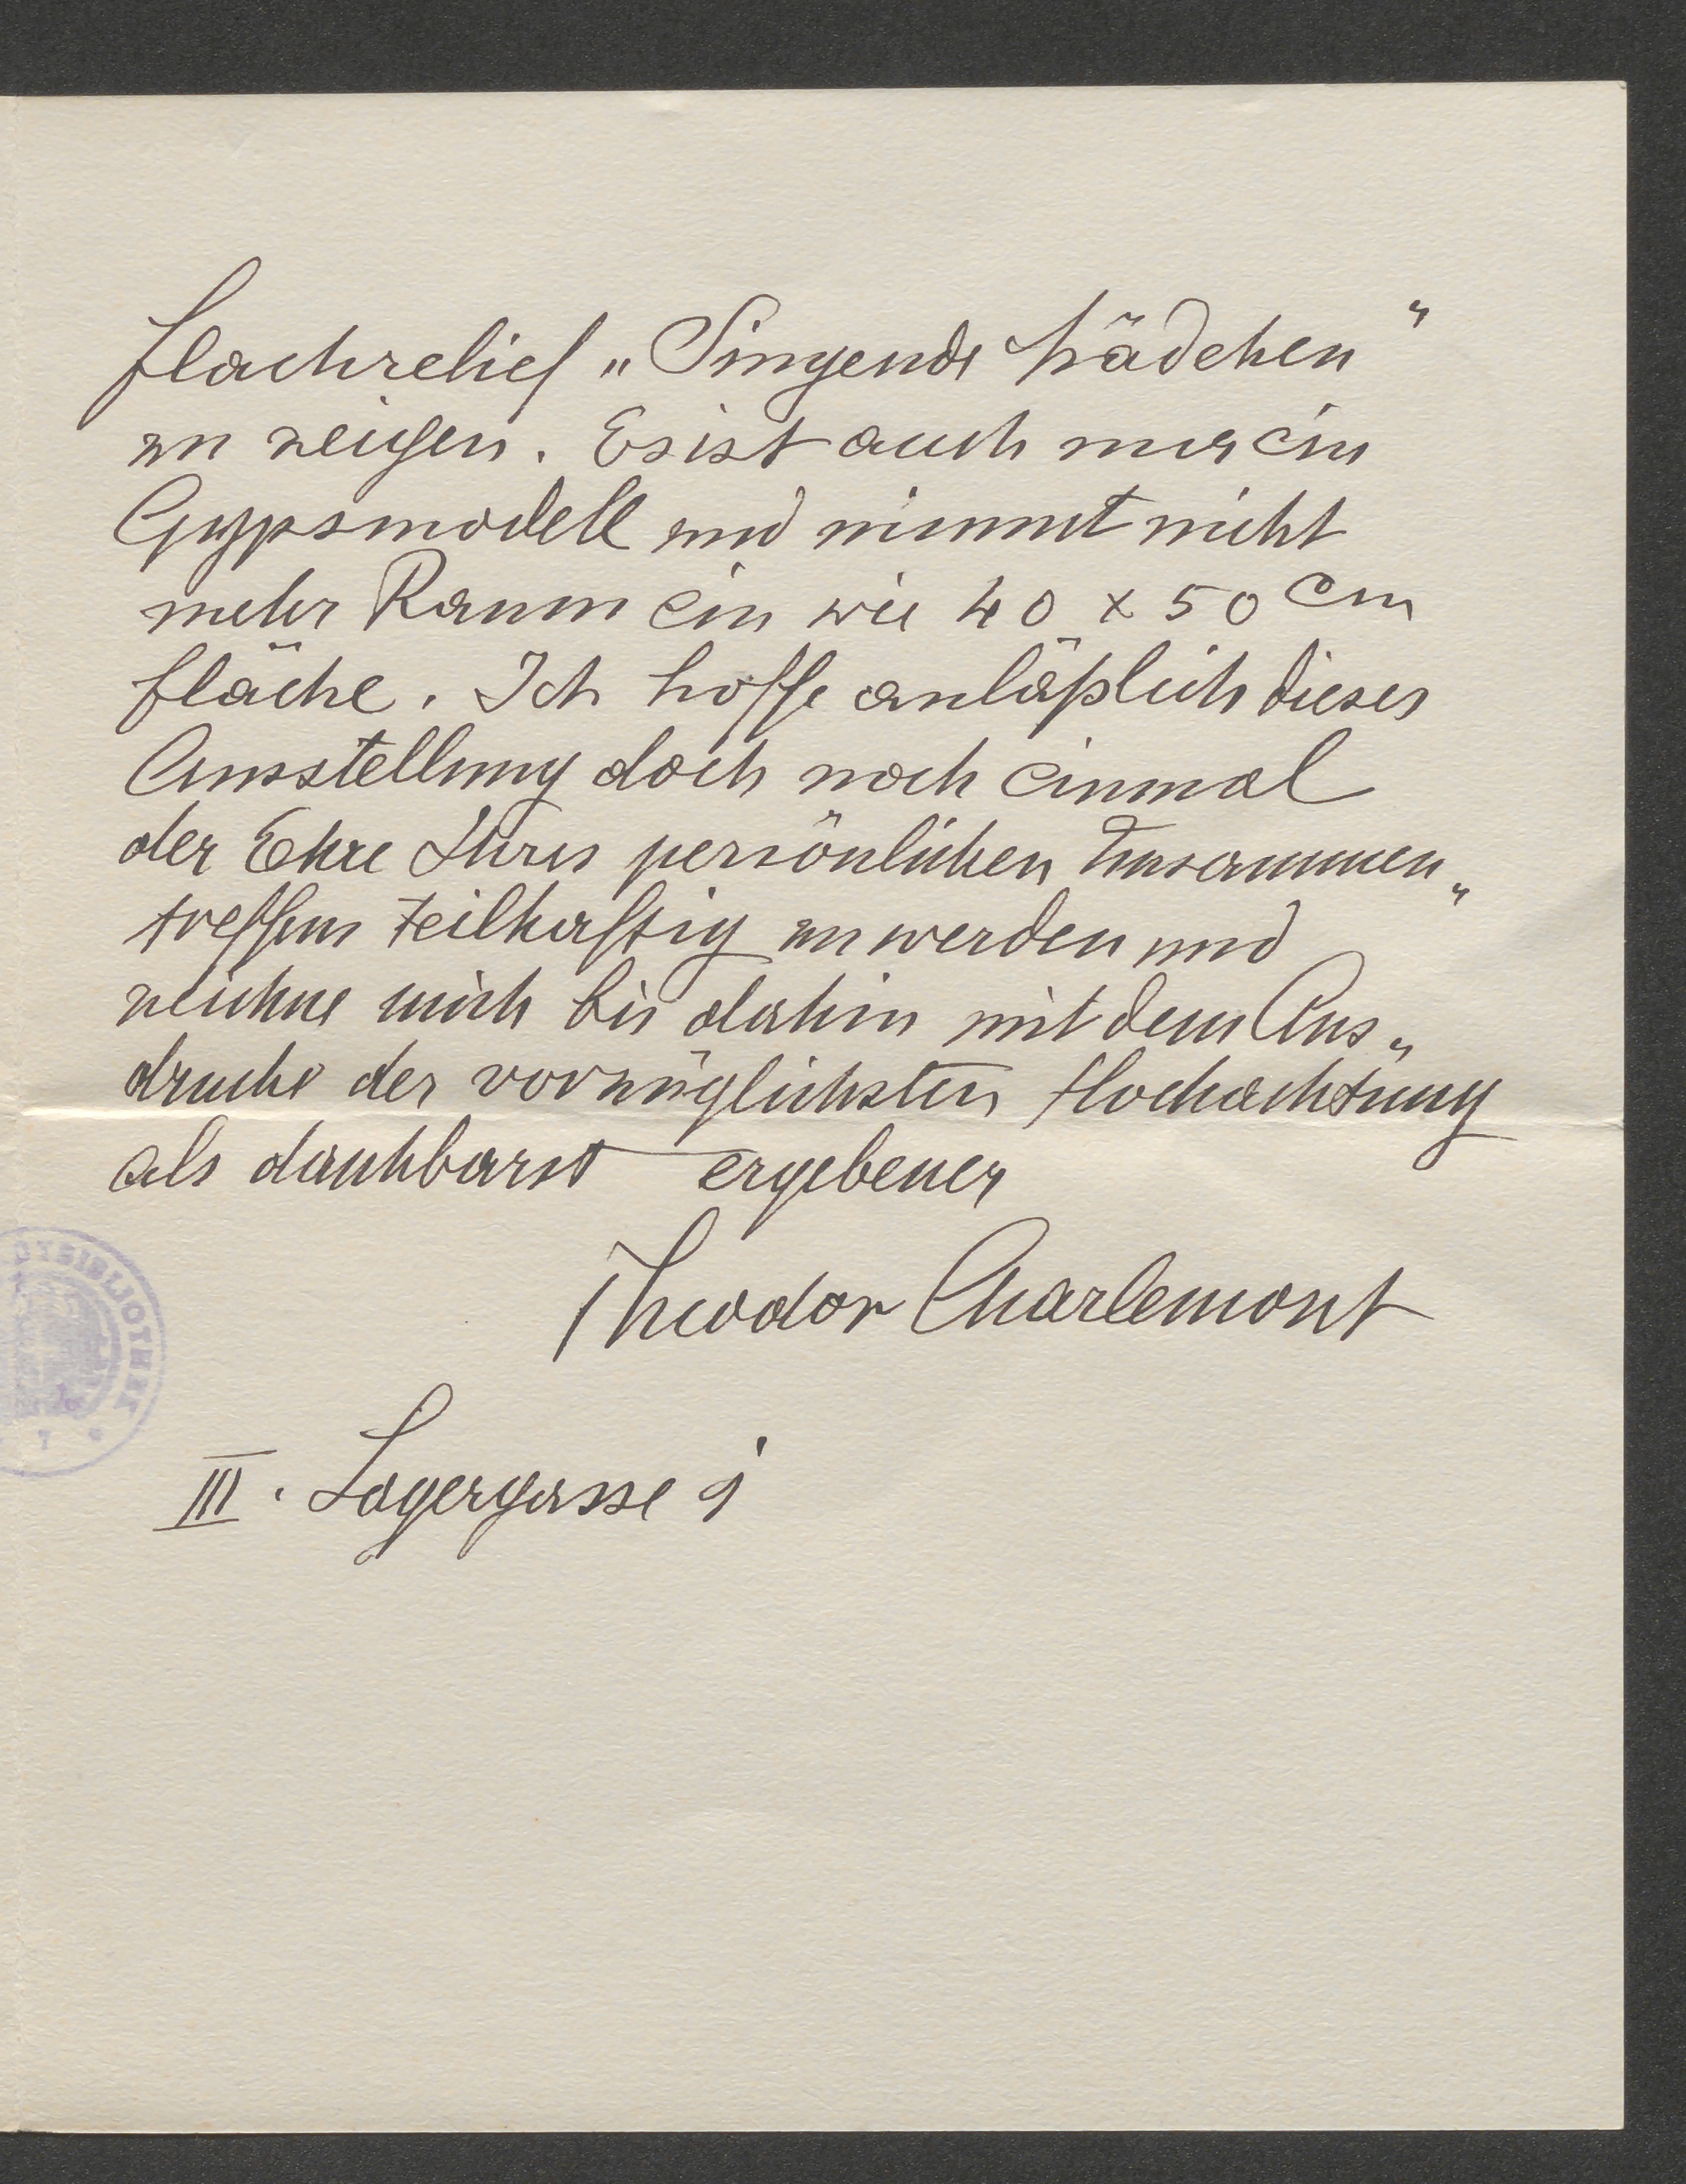 Flachrelief „Singende Mädchen"
zu zeigen. Es ist auch nur ein
Gypsmodell und nimmt nicht
mehr Raum ein wie 40 x 50 cm
Fläche. Ich hoffe anläßlich dieser
Ausstellung doch noch einmal
der Ehre Ihres persönlichen Zusammen„
treffens teilhaftig zu werden und
zeichne mich bis dahin mit dem Aus„
drucke der vorzüglichsten Hochachtung
als dankbarst ergebener
Theodor Charlemont
DTBIBLIOTHEK
III. Lagergasse 1